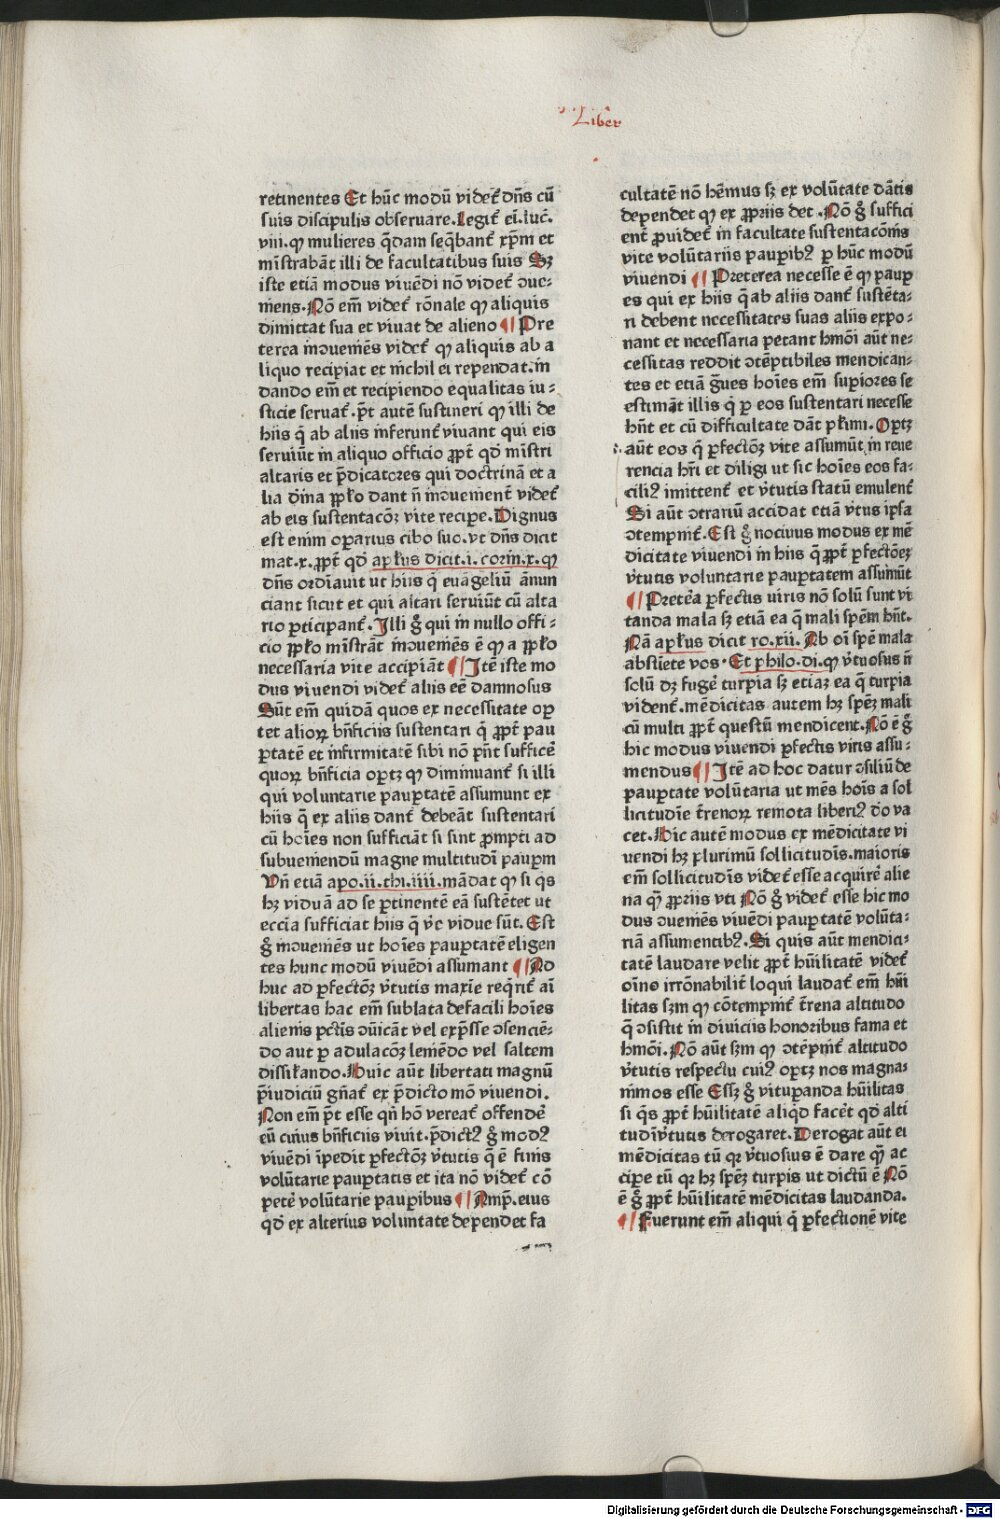 Liber
retinentes Et hūc modū videt᷑ dn̄s cū
suis discipulis obseruare. Legit᷑ ei. luc̄.
viii. ꝙ mulieres q̄dam seq̄bant᷑ xp̄m et
mīstrabāt illi de facultatibus suis Sꝫ
iste etiā modus viuēdi nō videt᷑ ↄue-
niens. Nō em̄ videt᷑ rōnale ꝙ aliquis
dimittat sua et viuat de alieno ¶ Pre
terea incōueniēs videt᷑ ꝙ aliquis ab a
liquo recipiat et nichil ei rependat. in
dando em̄ et recipiendo equalitas iu-
sticie seruat᷑. p̄t autē sustineri ꝙ illi de
hiis q̄ ab aliis inferunt᷑ viuant qui eis
seruiūt in aliquo officio ꝓpt᷑ qd̄ mīstri
altaris et p̄dicatores qui doctrinā et a
lia diīna pp̄lo dant n̄ incōuenient᷑ videt᷑
ab eis sustentacōꝫ vite recipe. Dignus
est enim oꝑarius cibo suo. vt dn̄s dicit
mat. x. ꝓpt᷑ qd̄ apl̄us dicit. i. corin. x. ꝙ
dn̄s ordiauit ut hiis q̄ euāgeliū ānun
ciant sicut et qui altari seruiūt cū alta
rio ꝑticipant᷑. Illi g̊ qui in nullo offi-
cio pp̄lo mīstrāt incōueniēs ē ꝙ a pp̄lo
necessaria vite accipiāt ¶ Itē iste mo
dus viuendi videt᷑ aliis eē damnosus
Sūt em̄ quidā quos ex necessitate opꝫ
tet alioꝝ bn̄ficiis sustentari q̄ ꝓpt᷑ pau
ꝑtatē et infirmitatē sibi nō pn̄t sufficē
quoꝝ bn̄ficia oꝑtꝫ ꝙ diminuant᷑ si illi
qui voluntarie pauꝑtatē assumunt ex
hiis q̄ ex aliis dant᷑ debeāt sustentari
cū hoīes non sufficiāt si sint ꝓmpti ad
subueniendū magne multitudī pauꝑm
Vn̄ etiā apo. ii. thi. iiii. mādat ꝙ si q̄s
hꝫ viduā ad se ꝑtinentē eā sustētet ut
eccīa sufficiat hiis q̄ v̄e vidue sūt. Est
g̊ incōueniēs ut hoīes pauꝑtatē eligen
tes hunc modū viuēdi assumant ¶ Ad
huc ad ꝑfectōꝫ v̄tutis maxīe req̄rit᷑ aī
libertas hac em̄ sublata defacili hoīes
alienis pctīs ↄicāt vel exp̄sse ↄsenciē-
do aut ꝑ adulacōꝫ leniēdo vel saltem
dissilando. Huic aūt libertati magnū
p̄iudiciū gn̄at᷑ ex p̄dicto mō viuendi.
Non em̄ p̄t esse qn̄ hō vereat᷑ offendē
eū cuius bn̄ficiis viuit. p̄dict⁹ g̊ mod⁹
viuēdi īpedit ꝑfectōꝫ v̄tutis q̄ ē finis
volūtarie pauꝑtatis et ita nō videt᷑ cō
petē volūtarie pauꝑibus ¶ Amp̄. eius
qd̄ ex alterius voluntate dependet fa
cultatē nō hēmus sꝫ ex volūtate dātis
dependet ꝙ ex ꝓpriis det. Nō g̊ suffici
ent᷑ ꝓuidet᷑ in facultate sustentacōnis
vite volūtariis pauꝑibꝫ ꝑ hūc modū
viuendi ¶ Preterea necesse ē ꝙ pauꝑ
es qui ex hiis q̄ ab aliis dant᷑ sustēta-
ri debent necessitates suas aliis expo-
nant et necessaria petant hmōi aūt ne-
cessitas reddit ↄtēptibiles mendican-
tes et etiā ḡues hoīes em̄ suꝑiores se
estimāt illis q̄ ꝑ eos sustentari necesse
hn̄t et cū difficultate dāt pl̄imi. Oꝑtꝫ
aūt eos q̄ ꝑfectōꝫ vite assumūt in reue
rencia hr̄i et diligi ut sic hoīes eos fa-
cili⁹ imittent᷑ et v̄tutis statū emulent᷑
Si aūt ↄtrariū accidat etiā v̄tus ipsa
ↄtempnit᷑. Est g̊ nociuus modus ex mē
dicitate viuendi in hiis q̄ ꝓpt᷑ ꝑfectōeꝫ
v̄tutis voluntarie pauꝑtatem assumūt
¶ Preteēa ꝑfectis uiris nō solū sunt vi
tanda mala sꝫ etiā ea q̄ mali spēm hn̄t.
Nā apl̄us dicit ro. xii. Ab oī spē mala
abstīete vos. Et philo. di. ꝙ v̄tuosus n̄
solū dꝫ fuge᷑ turpia sꝫ etiaꝫ ea q̄ turpia
vident᷑. mēdicitas autem hꝫ spēꝫ mali
cū multi ꝓpt᷑ questū mendicent. Nō ē g̊
hic modus viuendi ꝑfectis viris assu-
mendus ¶ Itē ad hoc datur ↄsiliū de
pauꝑtate volūtaria ut mēs hoīs a sol
licitudīe t̄renoꝝ remota liberi⁹ d̄o va
cet. Hic autē modus ex mēdicitate vi
uendi hꝫ plurimū sollicitudīs. maioris
em̄ sollicitudīs videt᷑ esse acquirē alie
na q̄ꝫ ꝓpriis vti Nō g̊ videt᷑ esse hic mo
dus ↄueniēs viuēdi pauꝑtatē volūta-
riā assumentibꝫ. Si quis aūt mendici-
tatē laudare velit ꝓpt᷑ hūilitatē videt᷑
oīno irrōnabilit᷑ loqui laudat᷑ em̄ hūi
litas sꝫm ꝙ cōtempnit᷑ t̄rena altitudo
q̄ ↄsistit in diuiciis honoribus fama et
hmōi. Nō aūt sꝫm ꝙ ↄtēpnit᷑ altitudo
v̄tutis respectu cui⁹ oꝑtꝫ nos magna-
nimos esse Essꝫ g̊ vituꝑanda hūilitas
si q̄s ꝓpt᷑ hūilitatē aliqd̄ facet᷑ qd̄ alti
tudīv̄tutis derogaret. Derogat aūt ei
mēdicitas tū qꝛ v̄tuosius ē dare q̄ꝫ ac
cipe tū qꝛ hꝫ spēꝫ turpis ut dictū ē Nō
ē g̊ ꝓpt᷑ hūilitatē mēdicitas laudanda.
¶ Fuerunt em̄ aliqui q̄ ꝑfectionē vite
Digitalisierung gefördert durch die Deutsche Forschungsgemeinschaft - DFG